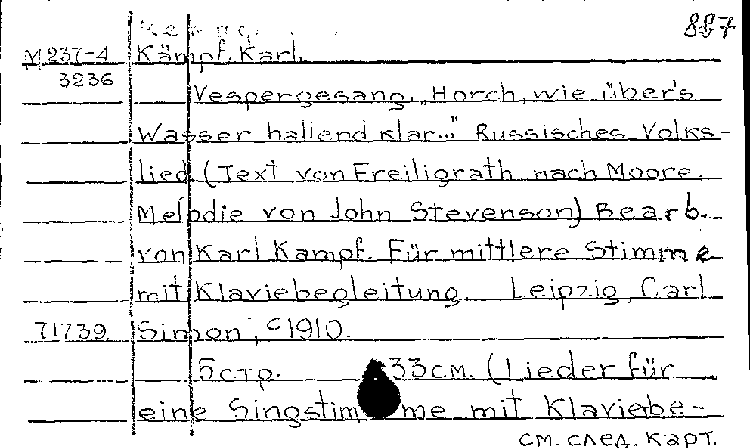 887
M 237-4 Kämpf, Karl.
3236 Vespergesang. „Horch, wie über's
Wasser hallend klar..." Russisches Volks-
lied (Text von Freiligrath nach Moore.
Melodie von John Stevenson) Bearb.
von Karl Kämpf. Für mittlere Stimme
mit Klaviebegleitung. Leipzig, Carl
71739 Simon, c1910.
5 стр. 33 см. (Lieder für
eine Singstimme mit Klaviebe-
см. след. карт.